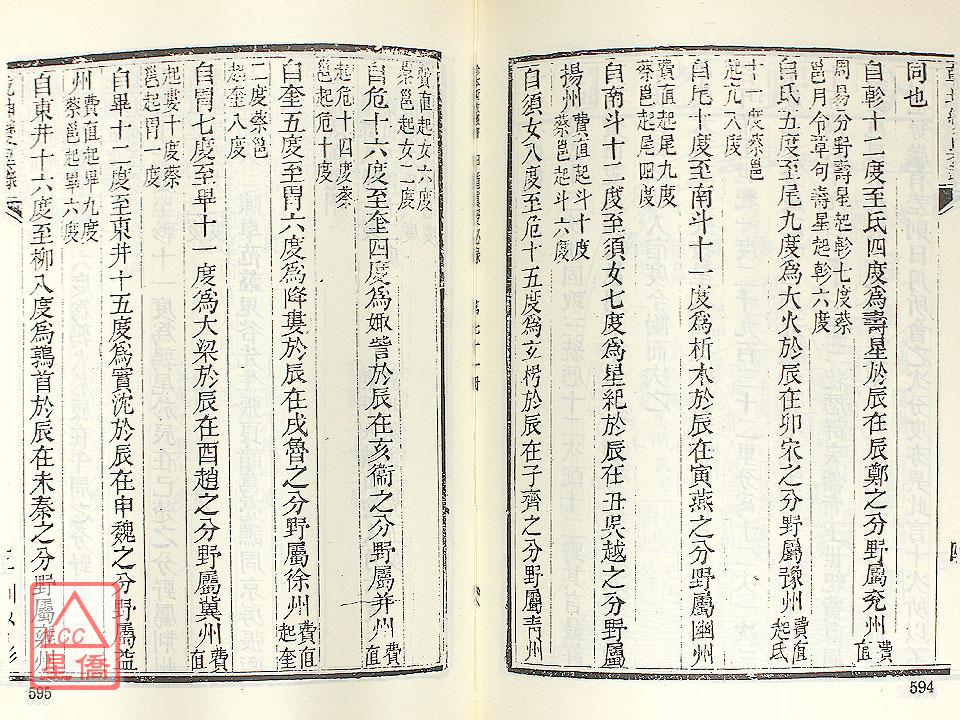 同也
自軫十二度至氐四度爲壽星於辰在辰鄭之分野屬兖州費直
周易分野壽星起軫七度蔡
邕月令章句壽星起軫六度
自氐五度至尾九度爲大火於辰在卯宋之分野屬豫州費直起氐
十一度蔡邕
起亢八度
自尾十度至南斗十一度爲析木於辰在寅燕之分野屬幽州
費直起尾九度
蔡邕起尾四度
自南斗十二度至須女七度爲星紀於辰在丑吳越之分野屬
揚州費直起斗十度
蔡邕起斗六度
自須女八度至危十五度爲玄枵於辰在子齊之分野屬青州
費直起女六度
蔡邕起女二度
自危十六度至奎四度爲娵訾於辰在亥衞之分野屬并州費直
起危十四度蔡
邕起危十度
自奎五度至胃六度爲降婁於辰在戌魯之分野屬徐州費直起奎
二度蔡邕
起奎八度
自胃七度至畢十一度爲大梁於辰在酉趙之分野屬冀州費直
起婁十度蔡
邕起胃一度
自畢十二度至東井十五度爲實沈於辰在申魏之分野屬益
州費直起畢九度
蔡邕起畢六度
自東井十六度至柳八度爲鶉首於辰在未秦之分野屬雍州
594
595
ICC
星僑